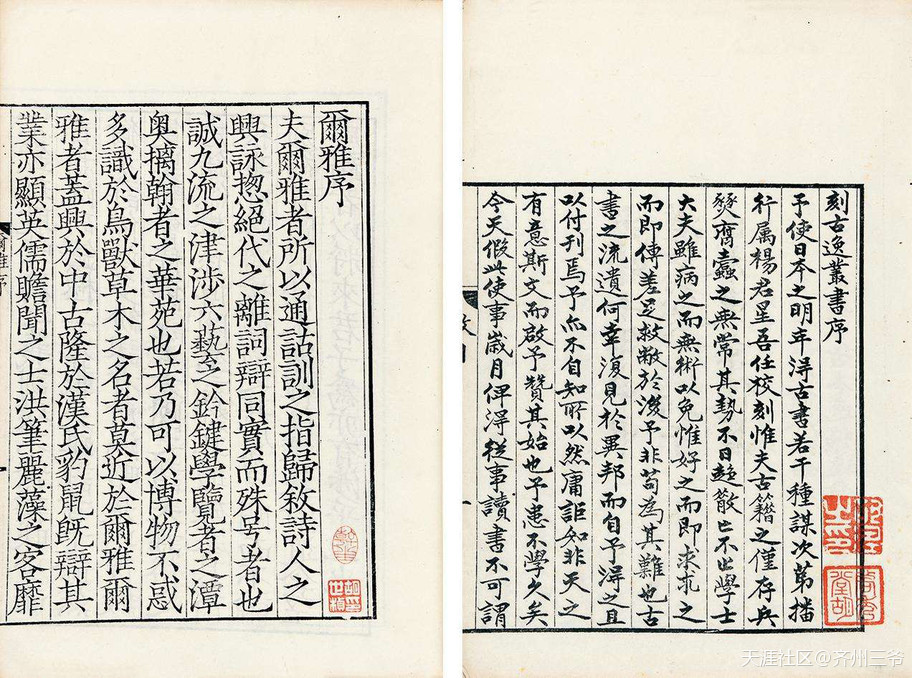 刻古逸叢書序
予使日本之明年淂古書若干種謀次苐播
行属楊君星吾任校刻惟夫古籍之僅存兵
燹腐蠹之無常其勢不日趍散亡不止學士
大夫雖病之而無術以免惟好之而即求求之
而即傳差足救敝於後予非苟為其難也古
書之流遺何幸復見於異邦而自予淂之且
以付刊焉予亦不自知所以然庸詎知非天之
有意斯文而啟予贊其始也予患不學久矣
今天假此使事歲月俾淂從事讀書不可謂
爾雅序
夫爾雅者所以通詁訓之指歸敘詩人之
興詠揔絕代之離詞辯同實而殊号者也
誠九流之津涉六藝之鈐鍵學覽者之潭
奥摛翰者之華苑也若乃可以博物不惑
多識於鳥獸草木之名者莫近於爾雅爾
雅者蓋興於中古隆於漢氏豹鼠既辯其
業亦顯英儒贍聞之士洪筆麗藻之客靡
天涯社区@齐州三爷